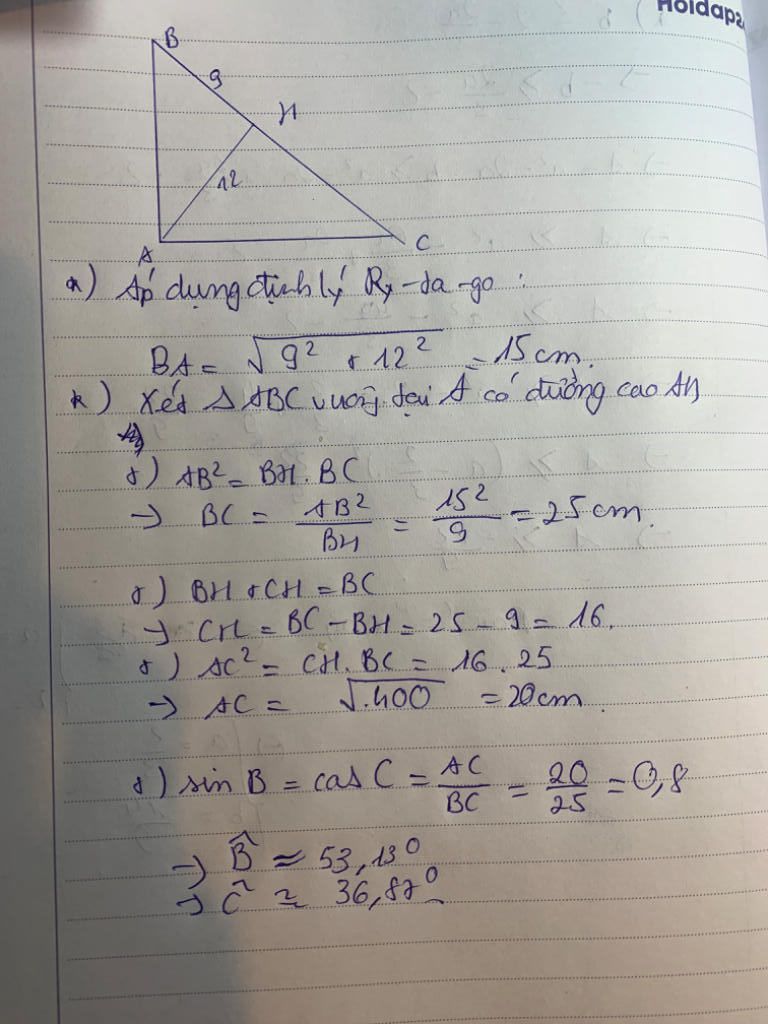 Hoidap2
B
9
H
12
A
C
a) Áp dụng định lý Py-ta-go :
BA = √9² + 12² = 15 cm.
b) Xét Δ ABC vuông tại A có đường cao AH
+) AB² = BH . BC
→ BC = AB²/BH = 15²/9 = 25 cm.
+) BH + CH = BC
→ CH = BC - BH = 25 - 9 = 16.
+) AC² = CH . BC = 16 . 25
→ AC = √400 = 20 cm.
+) sin B = cos C = AC/BC = 20/25 = 0,8
→ B̂ ≈ 53,13°
→ Ĉ ≈ 36,87°